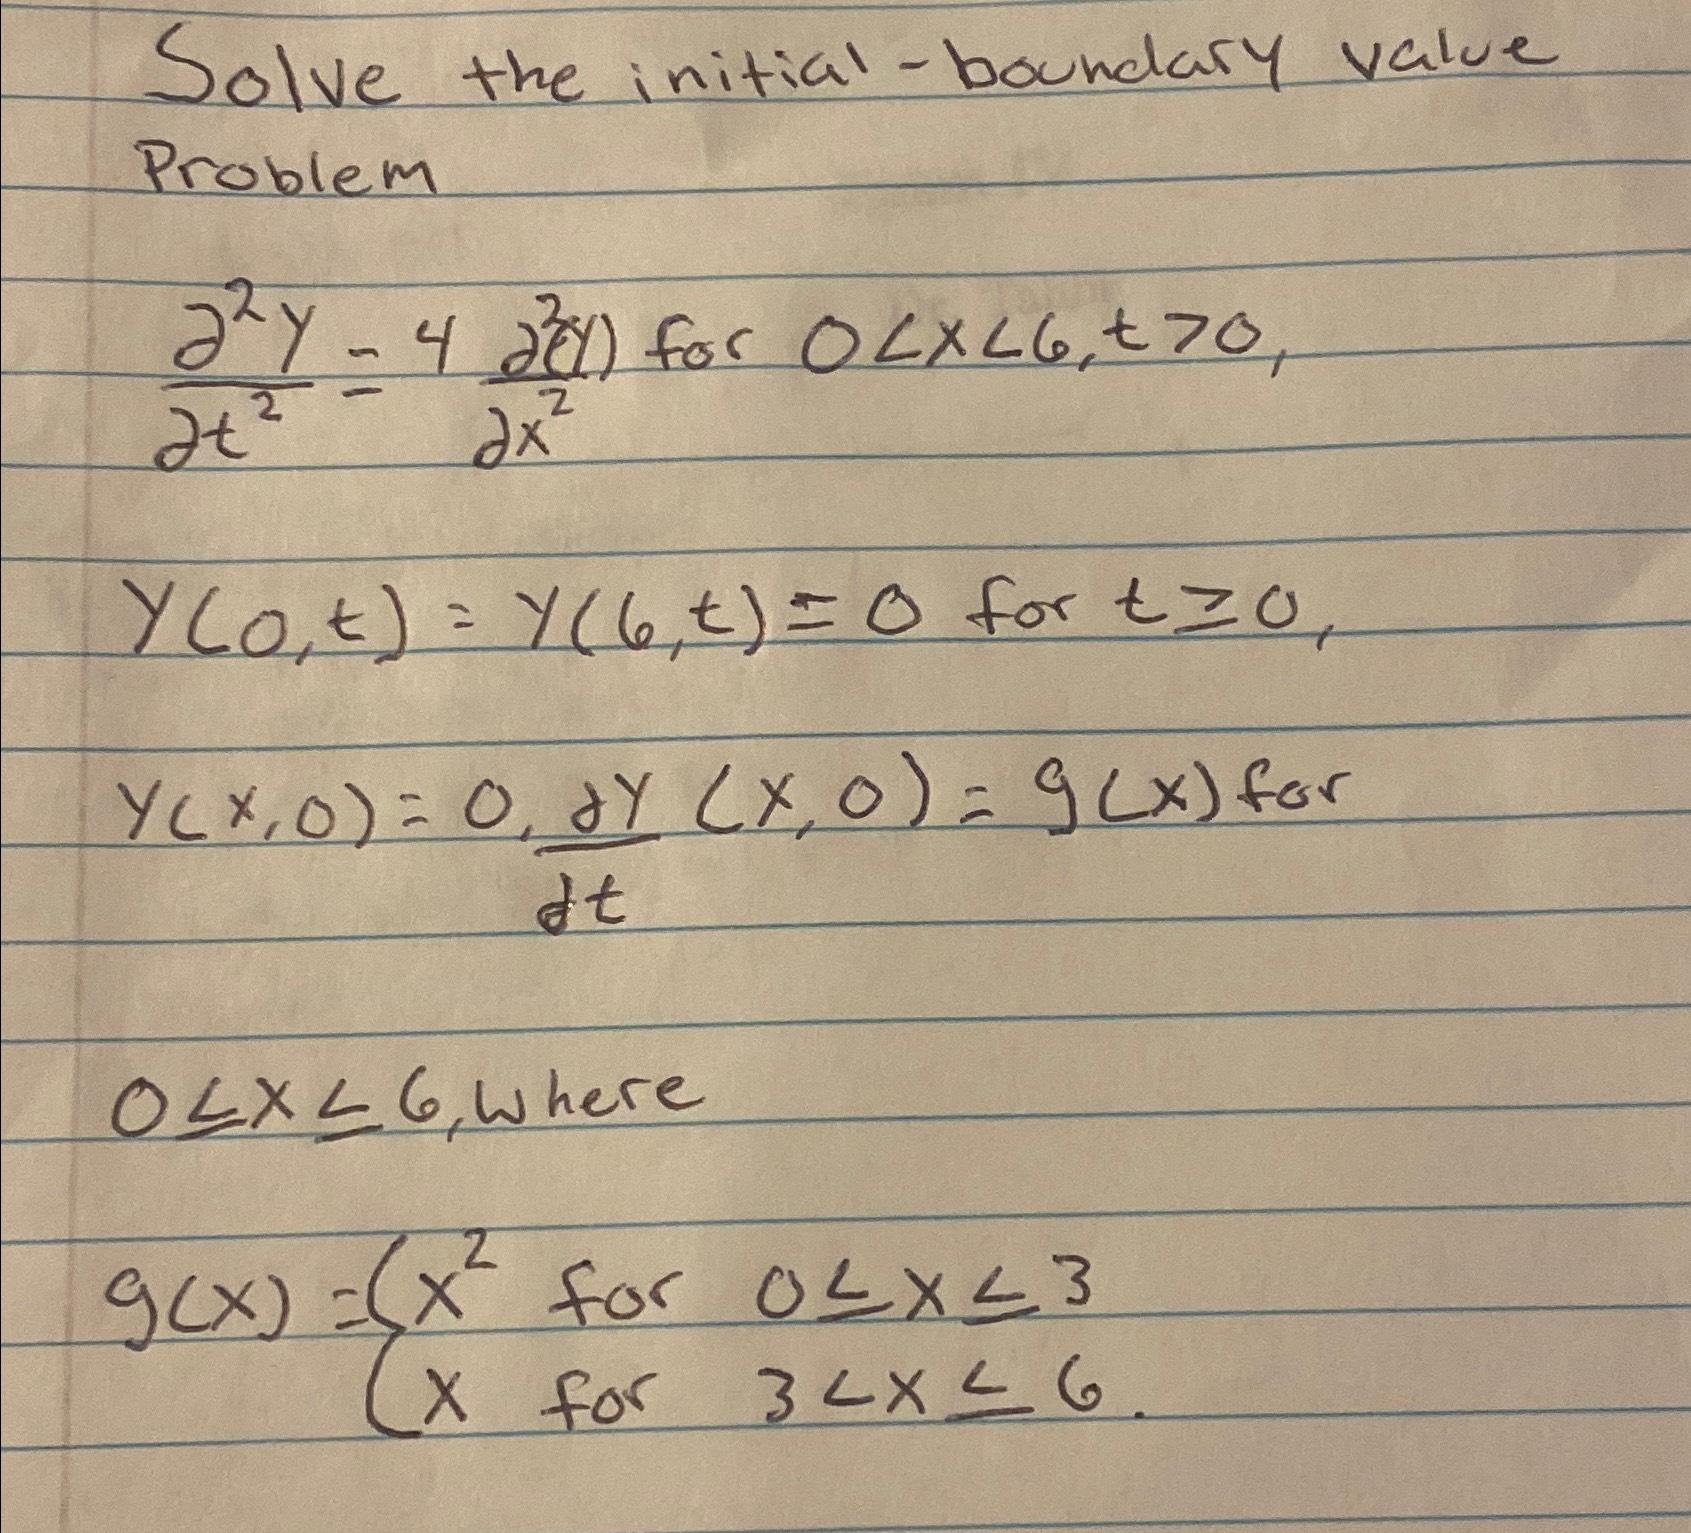 Solve the initial-boundary value
Problem
∂²Y/∂t² = 4 ∂²(Y)/∂x² for 0<x<6, t>0,
Y(0,t) = Y(6,t) = 0 for t≥0,
Y(x,0) = 0, ∂Y/∂t (x,0) = g(x) for
0≤x≤6, where
g(x) = { x² for 0≤x≤3
x for 3<x≤6.